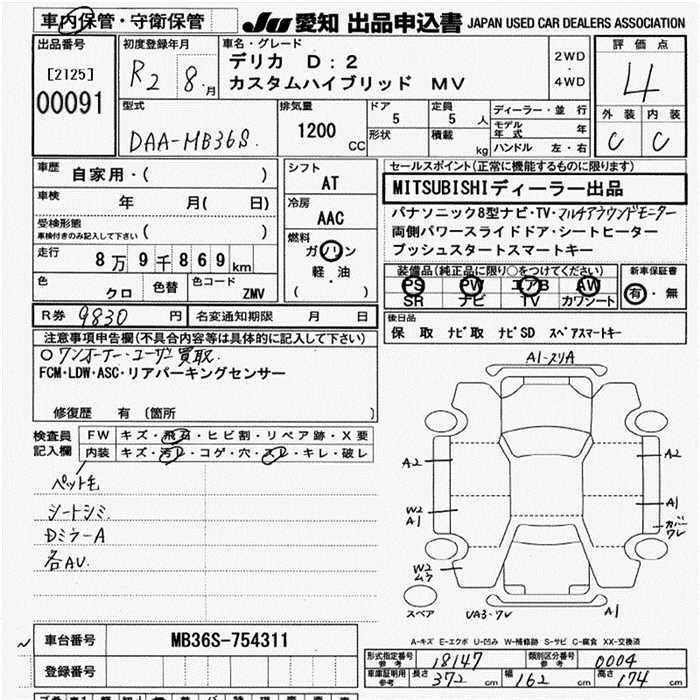 車内保管・守衛保管
JU愛知 出品申込書 JAPAN USED CAR DEALERS ASSOCIATION
出品番号
[2125]
00091
初度登録年月
R2 8.月
車名・グレード
デリカ D:2
カスタムハイブリッド MV
2WD
・
4WD
評価点
4
外装 内装
C C
型式
DAA-MB36S
排気量
1200
CC
ドア
5
定員
5 人
形状
積載
kg
ディーラー・並行
モデル年式 年
ハンドル 左・右
車歴
自家用・( )
車検
年 月( 日)
受検形態
車検付きのみ記入して下さい ( )
走行
8万9千869km
色
クロ
色替
色コード
ZMV
シフト
AT
冷房
AAC
燃料
ガソリン
軽・油
( )
セールスポイント(正常に機能するものに限ります)
MITSUBISHIディーラー出品
パナソニック8型ナビ・TV・マルチアラウンドモニター
両側パワースライドドア・シートヒーター
プッシュスタートスマートキー
装備品(純正品に限り○をつけてください)
PS PW エアB AW
SR ナビ TV カワシート
新車保証書
有・無
R券 9830 円
名変通知期限 月 日
後日品
保 取 ナビ取 ナビSD スペアスマートキー
注意事項申告欄(不具合内容等は具体的に記入して下さい)
○ワンオーナー・ユーザー買取.
FCM・LDW・ASC・リアパーキングセンサー
修復歴 有 〔箇所 〕
検査員記入欄
FW キズ・飛石・ヒビ割・リペア跡・X要
内装 キズ・汚レ・コゲ・穴・スレ・キレ・破レ
ペット毛
シートシミ
DミラーA
各AU.
A1-スリA
A2
A2
W2
A1
A1
カバー
ワレ
W2
ムラ
スペア
UA3・ワレ
A1
A-キズ E-エクボ U-凹み W-補修跡 S-サビ C-腐食 XX-交換済
車台番号 MB36S-754311
登録番号
形式指定番号
参考
18147
類別区分番号
参考
0004
車庫証明用
参考
長さ 372 cm
幅 162 cm
高さ 174 cm